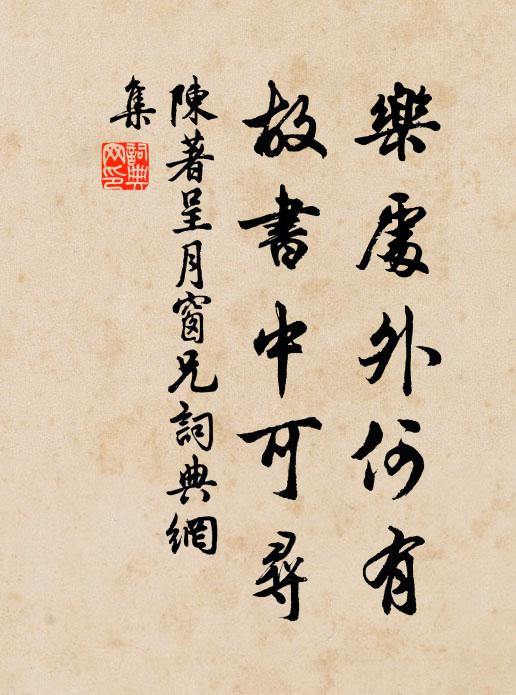 樂處外何有
故書中可尋
陳著呈月窗兄詞典網
集
詞典
网印